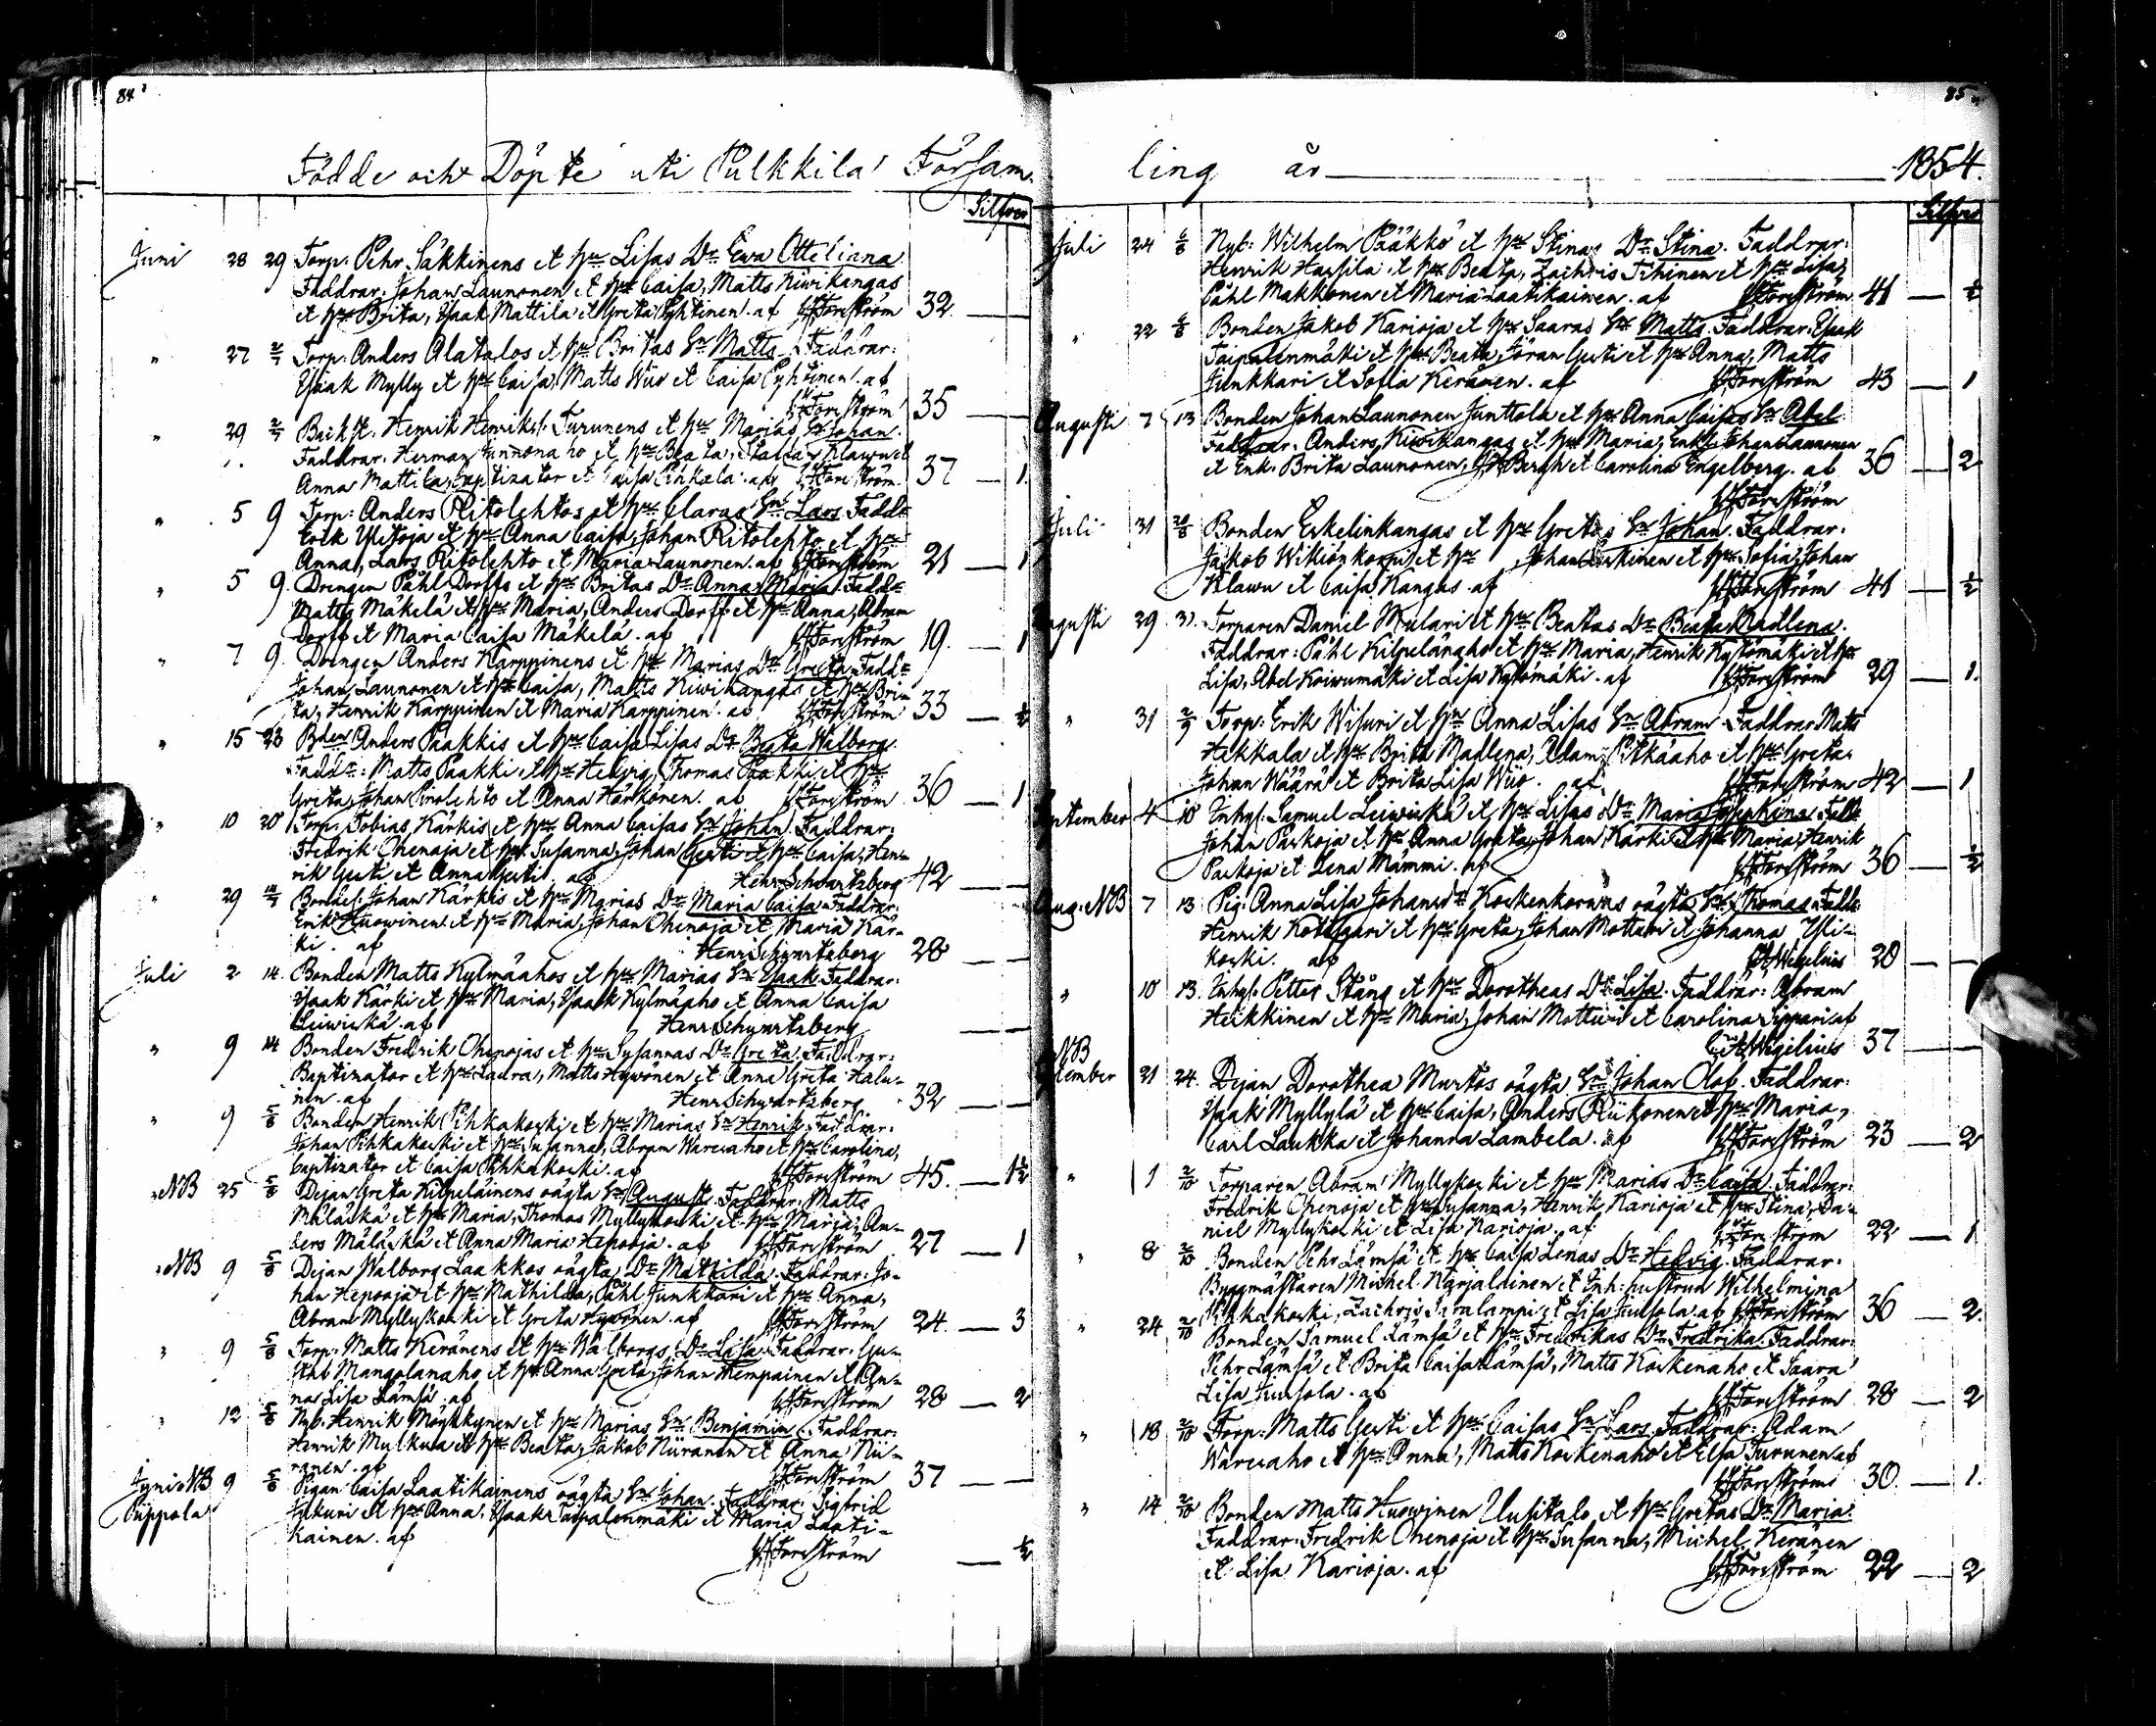 84
Födde och Döpte uti Pulkkila Försam-
Silfver
Juni 28 29 Torp: Pehr Säkkinens et hru Lisas Dr Ewa Otteliana
Faddrar: Johan Launonen et hru Caisa, Matts Kiwikangas
et hru Brita, Isaak Mattila et Greta Pyhtinen. af Forsström 32. — —
" 27 2/7 Torp: Anders Alatalos et hru Britas Sn Matts. Faddrar:
Isaak Mylly et hru Caisa, Matts Wüo et Caisa Pyhtinen. af
Forsström 35 — —
" 29 2/7 Henrik Henriks: Turunens et hru Marias Sn Johan.
Faddrar: Herman et hru Beata, Klawu et
Anna Mattila, Baptizator et Caisa Pihkala. af Forsström 37 — 1.
" 5 9 Torp: Anders Ritolehtos et hru Claras Sn Lars Fadd:
Erik Ylitoja et hru Anna Caisa, Johan Ritolehto et hru
Anna, Lars Ritolehto et Maria Launonen. af Forsström 21 — 1
" 5 9. Drengen Påhl Dorffs et hru Britas Dr Anna Maria. Fadd:
Matts Mäkelä et hru Maria, Anders Dorff et hru Anna, Abram
Dorff et Maria Caisa Mäkelä. af Forsström 19. — 1
" 7 9. Drengen Anders Karppinens et hru Marias Dr Greta. Fadd:
Johan Launonen et hru Caisa, Matts Kiwikangas et hru Bri-
ta, Henrik Karppinen et Maria Karppinen. af Forsström 33 — ½
" 15 23 Bden Anders Paakkis et hru Caisa Lisas Dr Beata Walborg.
Fadd: Matts Paakki et hru Hedvig, Thomas Paakki et hru
Greta, Johan Pirolehto et Anna Härkönen. af Forsström 36 — 1
" 10 20 Torp: Tobias Kärkis et hru Anna Caisas Sn Johan. Faddrar:
Fredrik Ohenoja et hru Susanna, Johan Gerti et hru Caisa, Hen-
rik Gerti et Anna Gerti. af Henr Schwartzberg 42 — —
" 29 14/7 Johan Kärkis et hru Marias Dr Maria Caisa. Faddrar:
Erik Huowinen et hru Maria, Johan Ohenoja et Maria Kär-
ki. af Henr Schwartzberg 28 — —
Juli 2 14. Bonden Matts Kylmäahos et hru Marias Sn Isaak. Faddrar:
Isaak Kärki et hru Maria, Isaak Kylmäaho et Anna Caisa
Leiwiskä. af Henr Schwartzberg — —
" 9 14 Bonden Fredrik Ohenojas et hru Susannas Dr Greta. Faddrar:
Baptizator et hru Laura, Matts Hyvönen et Anna Greta Halu-
nen. af Henr Schwartzberg 32 — —
" 9 5/8 Bonden Henrik Pihkakoski et hru Marias Sn Henrik. Faddrar:
Johan Pihkakoski et hru Susanna, Abram Waresaho et hru Carolina,
Baptizator et Caisa Pihkakoski. af Forsström 45. — 1½
" NB 25 5/8 Pejan Greta Kilpeläinens oägta Sn August. Faddrar: Matts
Mäläskä et hru Maria, Thomas Myllykoski et hru Maria, An-
ders Mäläskä et Anna Maria Heposja. af Forsström 27 — 1
" NB 9 5/8 Pejan Walborg Laakkos oägta Dr Mathilda. Faddrar: Jo-
han Heposja et hru Mathilda, Påhl Junkkari et hru Anna,
Abram Myllykoski et Greta Hyvönen. af Forsström 24. — 3
" 9 5/8 Torp: Matts Keränens et hru Walborgs Dr Lisa. Faddrar: Gu-
staf Mangolanaho et hru Anna Greta, Johan Kemppainen et An-
na Lisa Lämsä. af Forsström 28 — 2
" 12 5/8 Nyb: Henrik Möykkynen et hru Marias Sn Benjamin. Faddrar:
Henrik Mulkua et hru Beata, Jakob Niiranen et Anna Nii-
ranen. af Forsström 37 — —
Juni NB 9 5/8 Pigan Caisa Laatikainens oägta Sn Johan. Faddrar: Sigfrid
Piippola Jylkuri et hru Anna, Isaak Taipalenmäki et Maria Laati-
kainen. af Forsström — ½
85
ling år 1854.
Silfver
Juli 24 6/8 Nyb: Wilhelm Pääkkö et hru Stinas Dr Stina. Faddrar:
Henrik Hassila et hru Beata, Zachris Tihinen et hru Lisa,
Påhl Makkonen et Maria Laatikainen. af Forsström 41 — ½
" 22 6/8 Bonden Jakob Karioja et hru Saaras Sn Matts. Faddrar: Isaak
Taipalenmäki et hru Beata, Göran Gerti et hru Anna, Matts
Junkkari et Sofia Keränen. af Forsström 43 — 1
Augusti 7 13 Bonden Johan Launonen Junttola et hru Anna Caisas Sn Abel.
Faddrar: Anders Kiwikangas et hru Maria, Enkl: Johan Launonen
et Enk: Brita Launonen, Bergh et Carolina Engelberg. af 36 — 2
Forsström
Juli 31 20/8 Bonden Erkelinkangas et hru Gretas Sn Johan. Faddrar:
Jakob Wilionkorpi et hru Johan Kärkinen et hru Sofia, Johan
Klawu et Caisa Kangas. af Forsström 41 — ½
Augusti 29 31. Torparen Daniel Mulari et hru Beatas Dr Beata Madlena.
Faddrar: Påhl Kilpelängho et hru Maria, Henrik Kytömäki et hru
Lisa, Abel Koiwumäki et Lisa Kytömäki. af Forsström 29 — 1.
" 31 2/9 Torp: Erik Wisuri et hru Anna Lisas Sn Abram. Faddrar: Matts
Hekkala et hru Brita Madlena, Adam Pitkäaho et hru Greta,
Johan Wäärä et Brita Lisa Wüo. af Forsström 42 — 1
September 4 10 Inhys: Samuel Leiwiskä et hru Lisas Dr Maria Josephina. Fadd:
Johan Paskoja et hru Anna Greta, Johan Kärki et hru Maria, Henrik
Paskoja et Lena Mämmi. af Forsström 36 — ½
Aug: NB 7 13 Pig: Anna Lisa Johansdr Koskenkorwas oägta Sn Thomas. Fadd:
Henrik Kottsaari et hru Greta, Johan Motturi et Johanna Yli-
koski. af Wegelius 20 — —
" 10 13. Inhys: Petter Stång et hru Dorotheas Dr Lisa. Faddrar: Abram
Heikkinen et hru Maria, Johan Motturi et Carolina Sippari af
Wegelius 37 — —
NB
September 21 24. Pejan Dorothea Murtos oägta Sn Johan Olof. Faddrar:
Isaak Myllylä et hru Caisa, Anders Riikonen et hru Maria,
Carl Laukka et Johanna Lambela. af Forsström 23 — 2
" 1 2/10 Torparen Abram Myllykoski et hru Marias Dr Caisa. Faddrar:
Fredrik Ohenoja et hru Susanna, Henrik Karioja et hru Stina, Da-
niel Myllykoski et Lisa Karioja. af Forsström 22 — 1
" 8 2/10 Bonden Pehr Lämsä et hru Caisa Lenas Dr Hedvig. Faddrar:
Byggmästaren Michel Karjalainen et Inh: hustrun Wilhelmina
Pihkakoski, Zachris Iso Lampi et Lisa Junsola. af Forsström 36 — 2.
" 24 2/10 Bonden Samuel Lämsä et hru Fredrikas Dr Fredrika. Faddrar:
Pehr Lämsä et Brita Caisa Lämsä, Matts Koskenaho et Saara
Lisa Junsola. af Forsström 28 — 2
" 18 2/10 Torp: Matts Gerti et hru Caisas Sn Lars. Faddrar: Adam
Waresaho et hru Anna, Matts Koskenaho et Elsa Turunen af
Forsström 30. — 1.
" 14 2/10 Bonden Matts Huowinen Uusitalo et hru Gretas Dr Maria.
Faddrar: Fredrik Ohenoja et hru Susanna, Michel Keränen
et Lisa Karioja. af Forsström 22 — 2